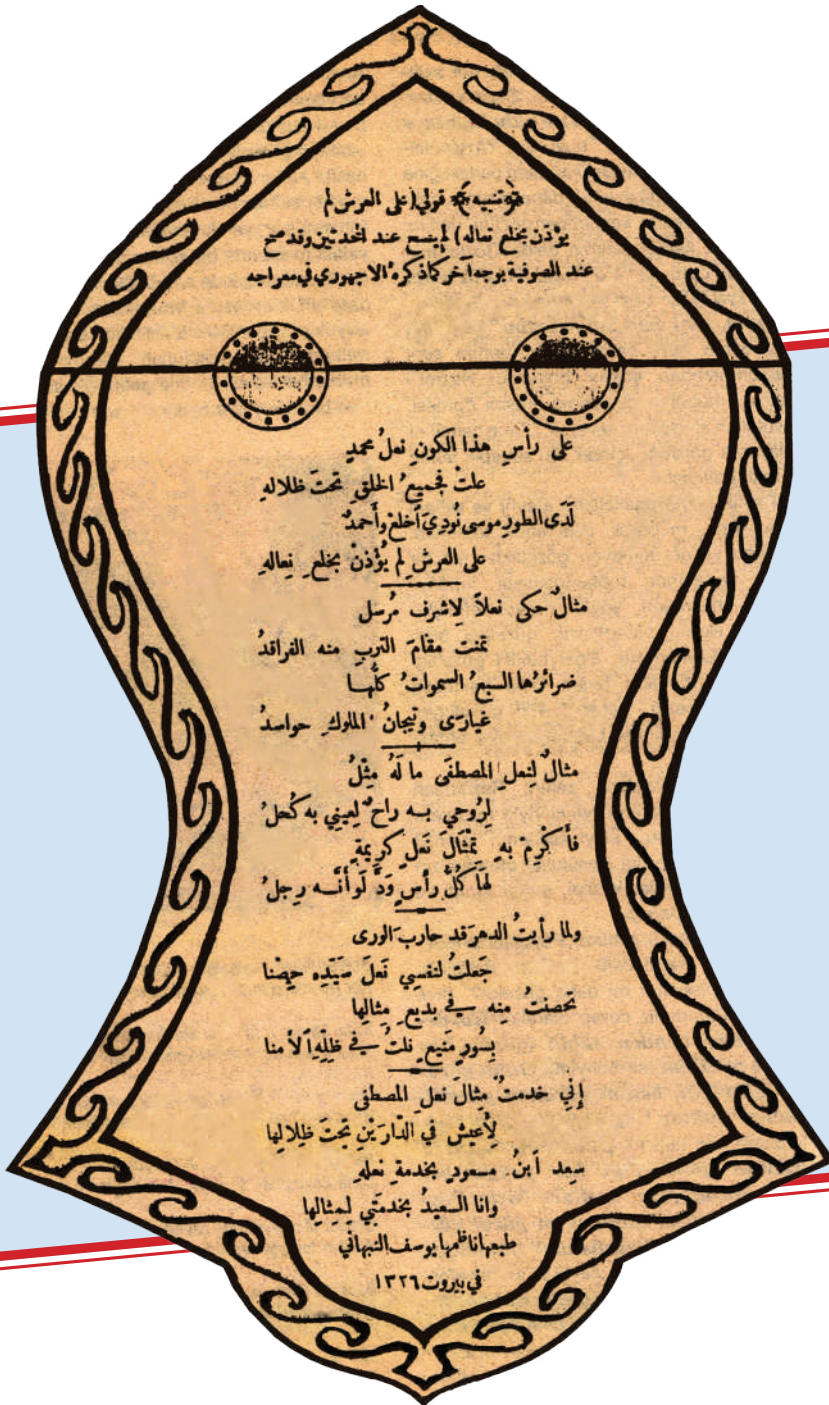 ﴿تنبيه﴾ قولي (على العرش لم
يؤذن بخلع نعاله) لم يصح عند المحدثين وقد صح
عند الصوفية بوجه آخر كما ذكره الاجهوري في معراجه
على رأسِ هذا الكونِ نعلُ محمدٍ
علتْ فجميعُ الخلقِ تحتَ ظلالهِ
لَدَى الطورِ موسى نُودِيَ اَخلعْ وأَحمدٌ
على العرشِ لم يُؤْذنْ بخلعِ نِعالهِ
مثالٌ حكى نعلاً لاشرف مُرسل
تمنت مقامَ التربِ منه الفراقدُ
ضرائرُها السبعُ السمواتُ كلُّها
غيارَى وتيجانُ الملوكِ حواسدُ
مثالٌ لِنعلِ المصطفَى ما لَهُ مِثْلُ
لِرُوحي به راحٌ لِعيني به كُحلُ
فأَكْرِمْ بهِ تمْثالَ نَعلٍ كَرِيمةٍ
لهَا كُلُّ رأسٍ وَدَّ لَو أَنَّه رِجلُ
ولما رأيتُ الدهرَ قد حاربَ الورى
جَعلتُ لنفسِي نَعلَ سَيّدِه حِصْنا
تحصنتُ منه في بديعِ مِثالِها
بِسُورٍ مَنيعٍ نلتُ في ظلّهِ اَلأمنا
إِنِّي خدمتُ مِثالَ نعلِ المصطفى
لِأَعيشَ في الدّارَيْنِ تحتَ ظِلالِها
سعِد اَبنُ مسعودٍ بخدمةِ نعلهِ
وانا السعيدُ بخدمَتِي لِمِثالِها
طبعها ناظمها يوسف النبهاني
في بيروت ١٣٢٦